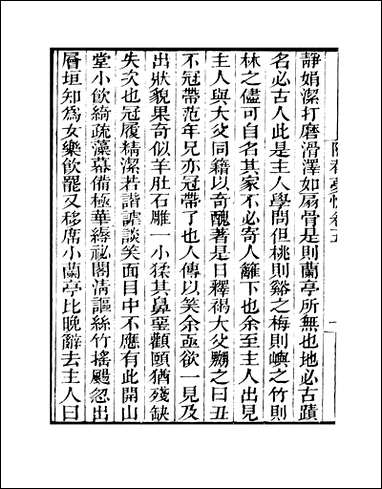 靜娟潔打磨滑澤如扇骨是則蘭亭所無也地必古蹟
名必古人此是主人學問但桃則谿之梅則嶼之竹則
林之儘可自名其家不必寄人籬下也余至主人出見
主人與大父同籍以奇醜著是日釋褐大父嬲之曰丑
不冠帶范年兄亦冠帶了也人傳以笑余亟欲一見及
出狀貌果奇似羊肚石雕一小猱其鼻堊顴頤猶殘缺
失次也冠履精潔若諧謔談笑面目中不應有此開山
堂小飲綺疏藻幕備極華縟祕閣清謳絲竹搖颺忽出
層垣知爲女樂飲罷又移席小蘭亭比晚辭去主人曰